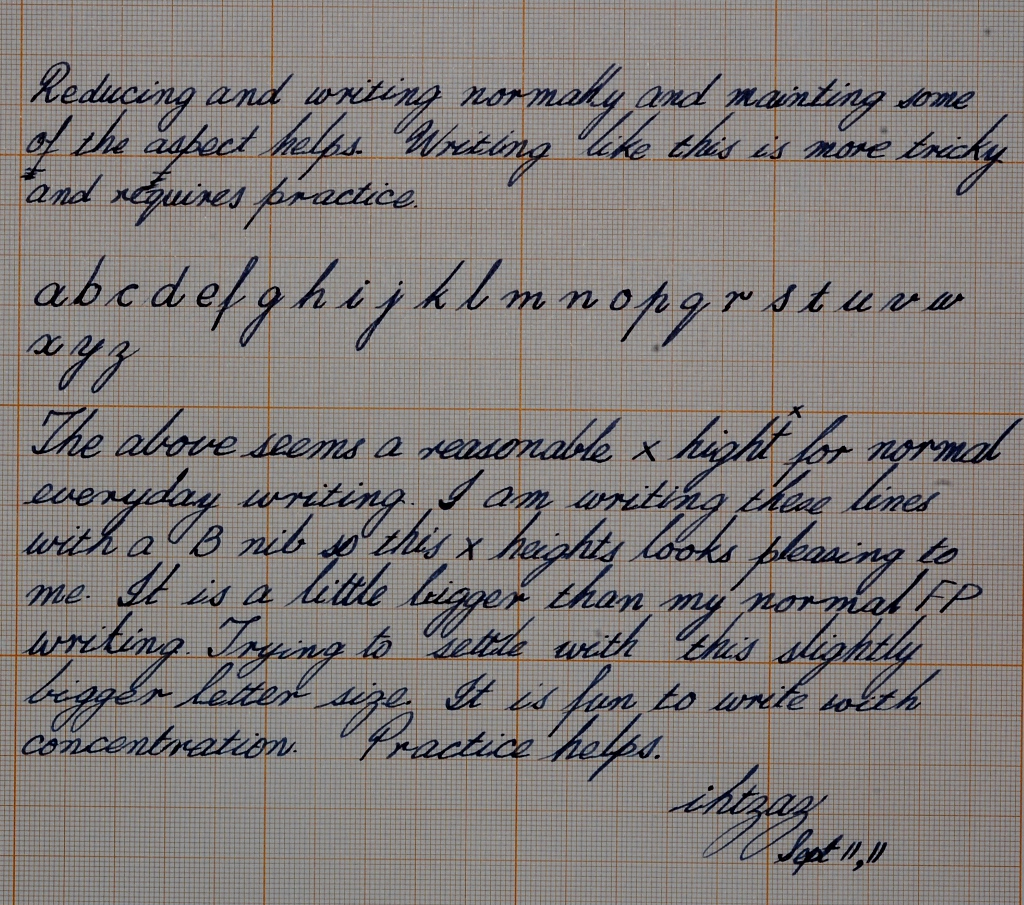 Reducing and writing normally and mainting some
of the aspect helps. Writing like this is more tricky
and requires practice.
a b c d e f g h i j k l m n o p q r s t u v w
x y z
The above seems a reasonable x hight x for normal
everyday writing. I am writing these lines
with a B nib so this x heights looks pleasing to
me. It is a little bigger than my normal FP
writing. Trying to settle with this slightly
bigger letter size. It is fun to write with
concentration. Practice helps.
ihtzaz
Sept 11, 11